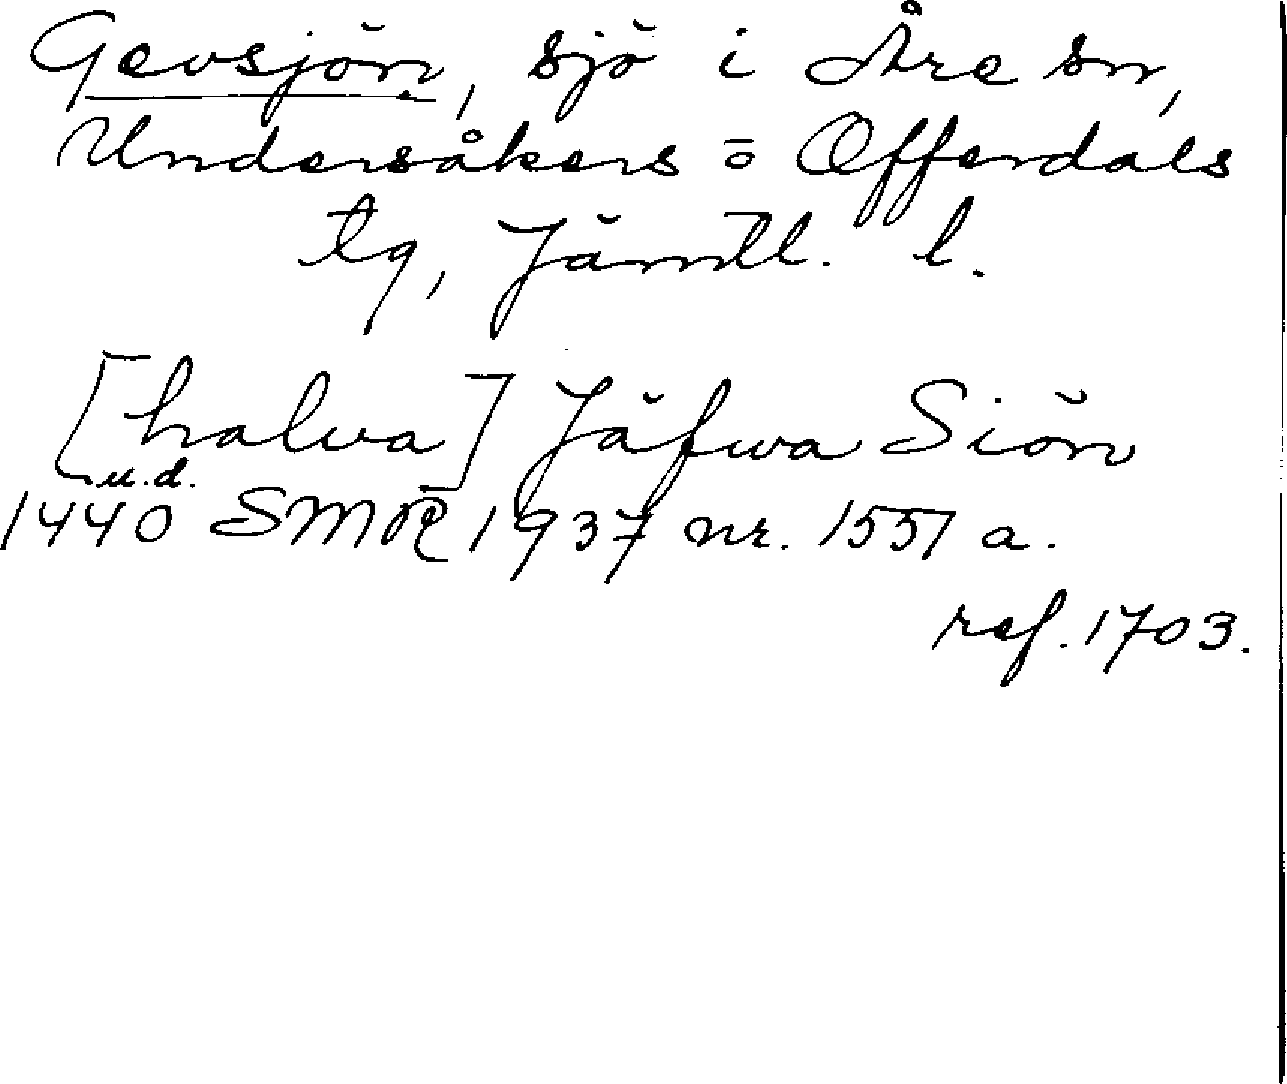 Gevsjön, sjö i Åre sn,
Undersåkers o Offerdals
tg, Jämtl. l.
[halva] Jäfwa Siön
u.d.
1440 SMR 1937 nr. 1557 a.
ref. 1703.